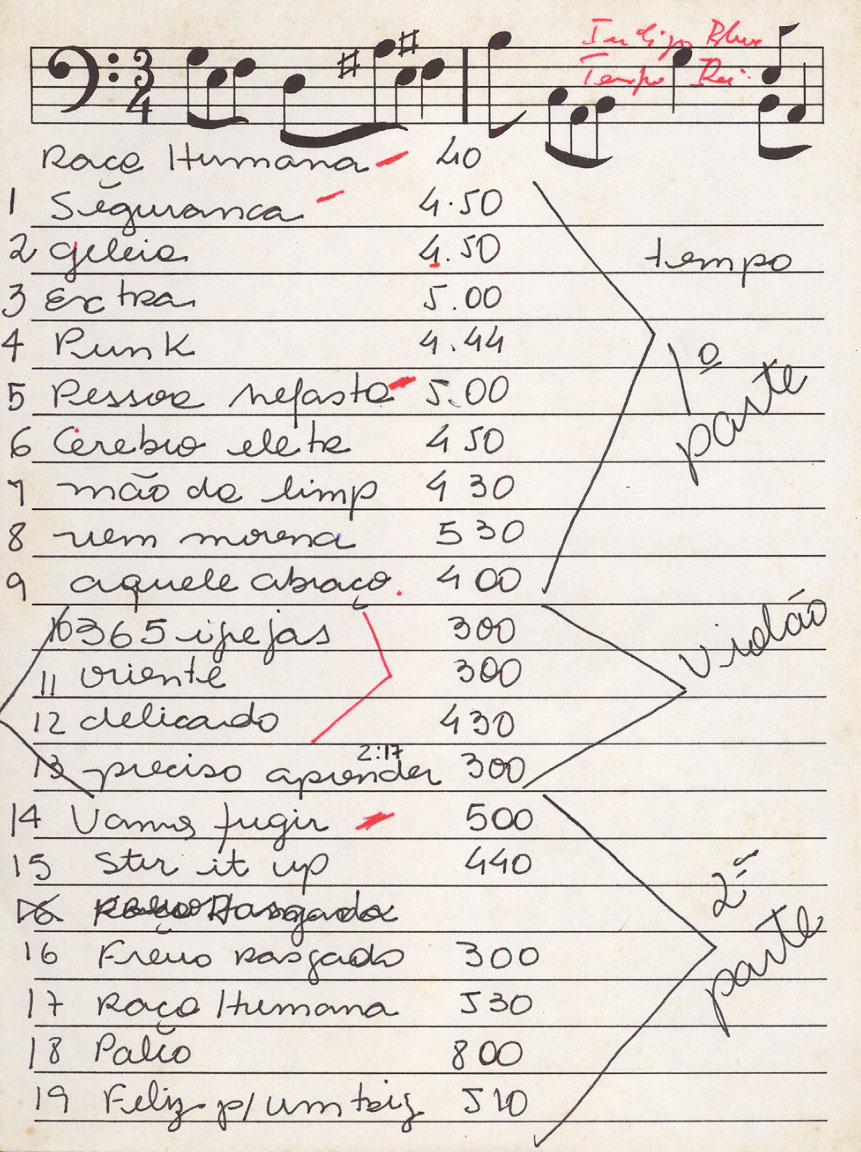 Indigo Blue
Tempo Rei
Raça Humana - 40
1 Segurança - 4.50
2 geleia 4.50
tempo
3 Extra 5.00
4 Punk 4.44
1º parte
5 Pessoa nefasta - 5.00
6 Cerebro eletr 4 50
7 mão da limp 4 30
8 vem morena 5 30
9 aquele abraço. 4 00
10 365 igrejas 300
violão
11 oriente 300
12 delicado 430
2:17
13 preciso aprender 300
14 Vamos fugir - 500
15 Stir it up 440
2ª parte
16 Frevo Rasgado 300
17 Raça Humana 530
18 Palco 800
19 Feliz p/ um triz 510